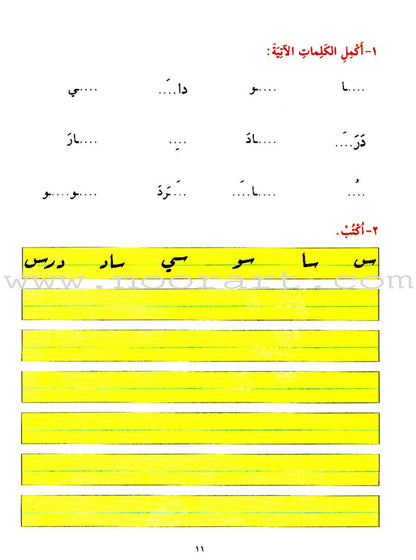 ١- أَكْمِلِ الكَلِماتِ الآتِيَةَ :
....ـا ....ـو دا....َ ....ـي
دَرَ....َ ....ـادَ ....ِ ....ـارَ
....ُ ....ـا....َ ....َـرَدَ ....ـو....ـو
٢- اُكْتُبْ .
س سا سو سي ساد درس
www.noorart.com
١١